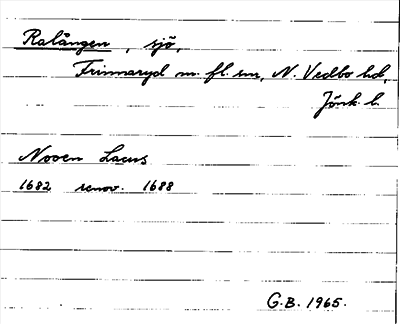 Ralången, sjö,
Frinnaryd m. fl. snr, N. Vedbo hd,
Jönk. l.
Nooen Lacus
1682 renov. 1688
G.B. 1965.